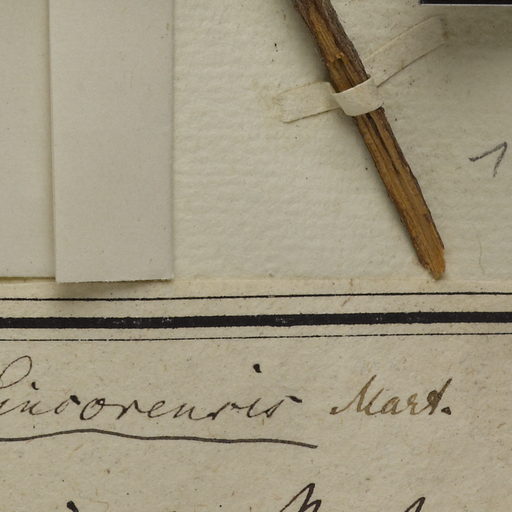 Sincorensis Mart.